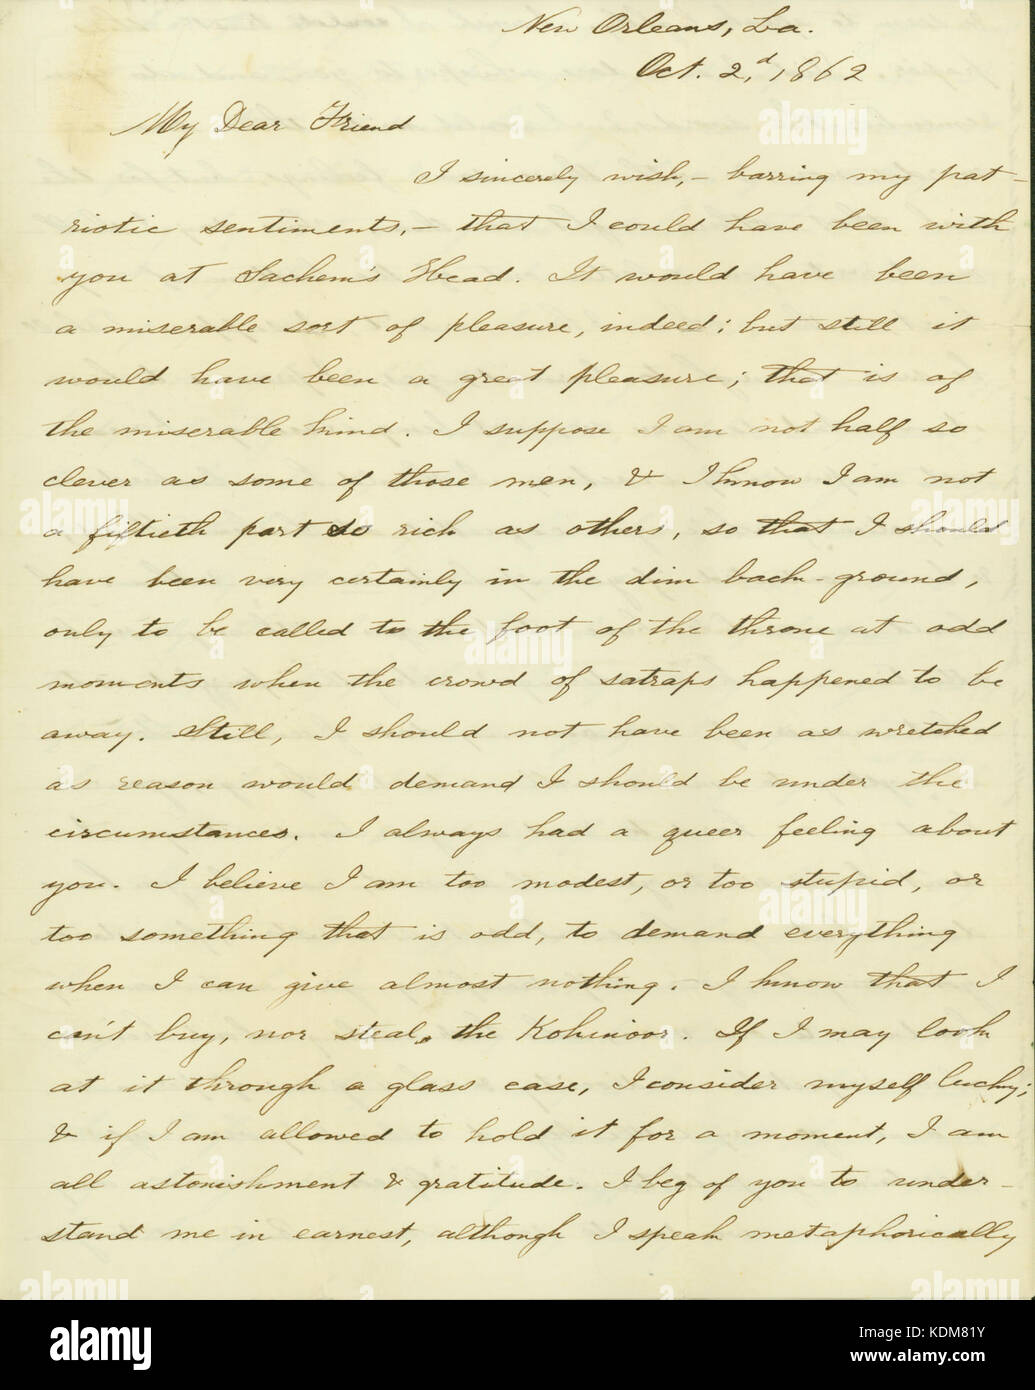 New Orleans, La.
Oct. 2,d 1862
My Dear Friend
I sincerely wish, - barring my pat-
riotic sentiments, - that I could have been with
you at Sachem's Head. It would have been
a miserable sort of pleasure, indeed; but still it
would have been a great pleasure; that is of
the miserable kind. I suppose I am not half so
clever as some of those men, & I know I am not
a fiftieth part so rich as others, so that I should
have been very certainly in the dim back-ground,
only to be called to the foot of the throne at odd
moments when the crowd of satraps happened to be
away. Still, I should not have been as wretched
as reason would demand I should be under the
circumstances. I always had a queer feeling about
you. I believe I am too modest, or too stupid, or
too something that is odd, to demand everything
when I can give almost nothing. I know that I
can't buy, nor steal, the Kohinoor. If I may look
at it through a glass case, I consider myself lucky;
& if I am allowed to hold it for a moment, I am
all astonishment & gratitude. I beg of you to under-
stand me in earnest, although I speak metaphorically
alamy
Image ID: KDM81Y
www.alamy.com